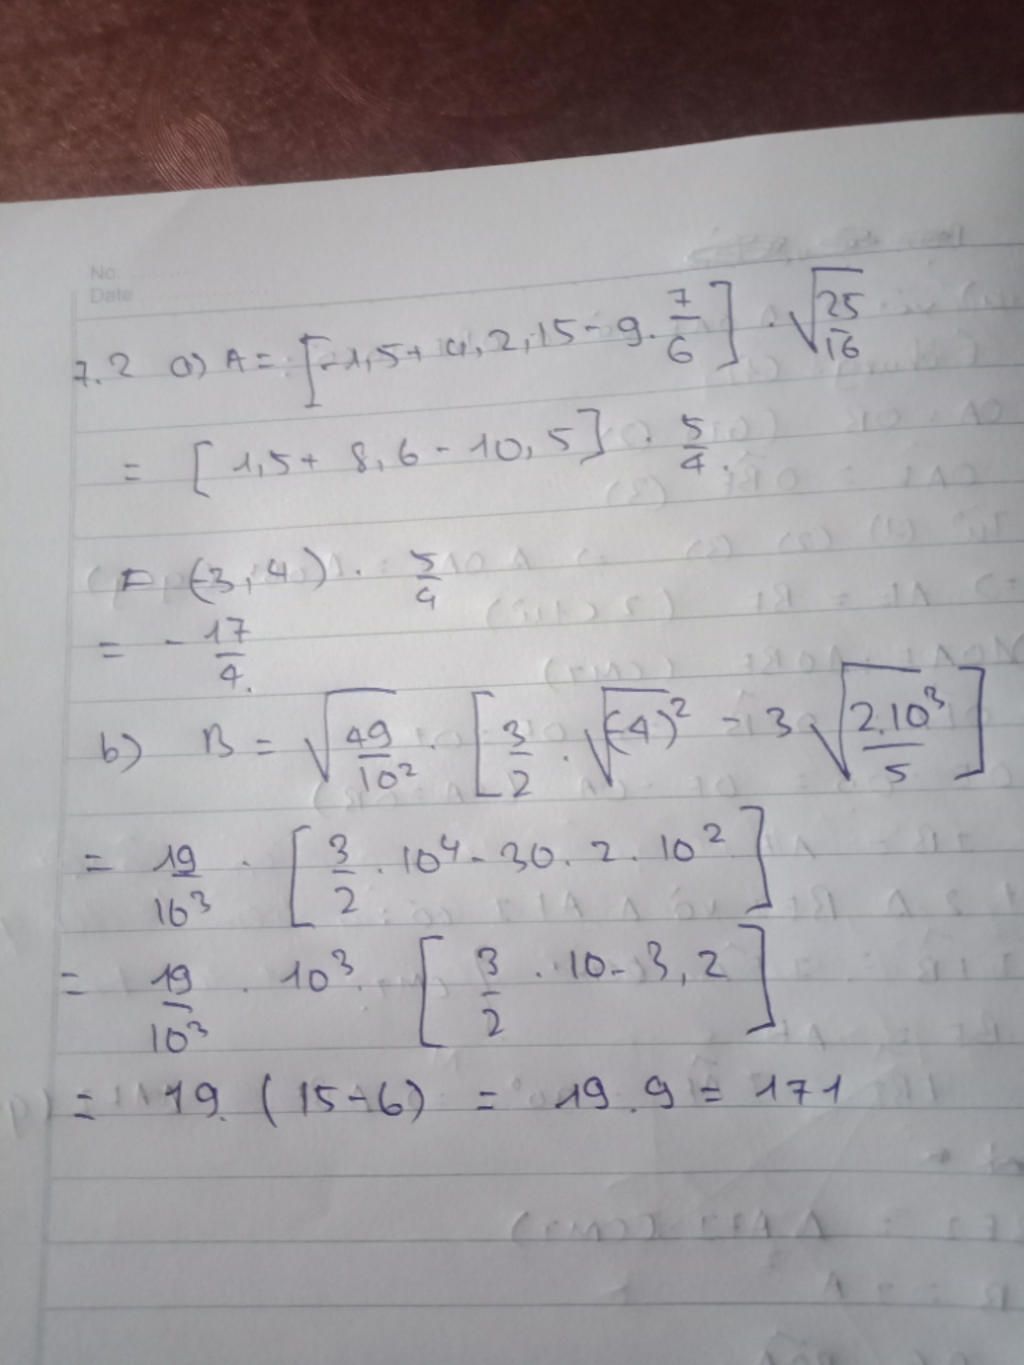 No.
Date
7.2 a) A = [-1,5 + 4.2,15 - 9. 7/6] . √(25/16)
= [1,5 + 8,6 - 10,5] . 5/4.
= (-3,4) . 5/4
= - 17/4.
b) B = √(49/10²) . [3/2 . √(-4)² - 3√(2.10³/5)]
= 19/10³ . [3/2 . 10⁴ - 30.2.10²]
= 19/10³ . 10³. [3/2 . 10 - 3,2]
= 19. (15-6) = 19.9 = 171